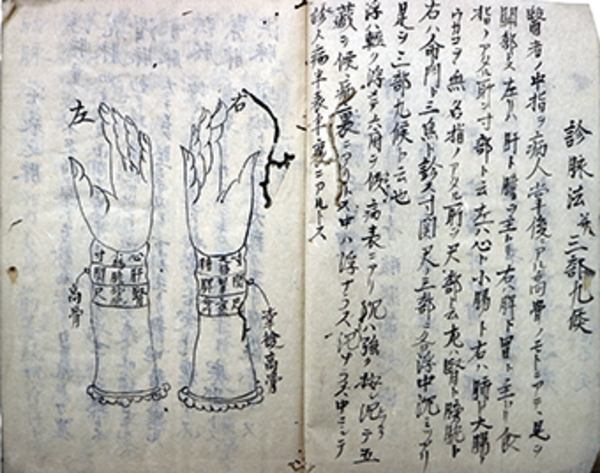 診脉法並三部九候
醫者ノ中指ヲ病人掌後ノアル高骨ノモトニアテ、是ヲ
關部ト云左リハ肝ト腎ヲ主トリ右ハ脾ト胃ヲ主トル食
指ノアタル所ヲ寸部ト云左ハ心ト小腸ト右ハ肺ト大腸ト
ウカヾヲ無名指ノアタル所ヲ尺部ト云左ハ腎ト膀胱ト
右ハ命門ト三焦ト診ス寸関尺ノ三部ニ各浮中沉ミツアリ
是ヲ三部九候ト云也
浮ハ輕ク浮ニテ六府ヲ候病表ニアリ沉ハ強ク按シ沈テ五
蔵ヲ候病裏ニアリトス中ハ浮ナラス沈ナラス中ニシテ
診ス病半表半裏ニアルトス
右
左
寸關尺
心肝腎
高骨
掌後高骨